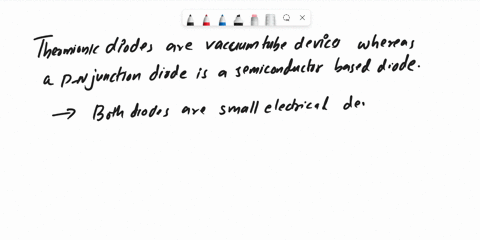 Thermionic diodes are vaccum tube device whereas
a P-N junction diode is a semiconductor based diode.
→ Both diodes are small electrical de